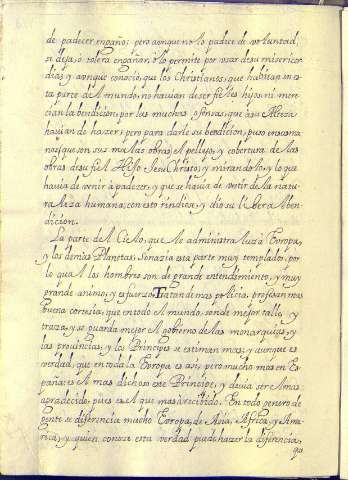 de padecer engaño; pero aunque no lo padice de voluntad,
se deja, o tolera engañar, o lo permite por usar de su misericor
dia; y aunque conocio, que los Christianos, que habitan en es
ta parte del mundo, no hauian de ser fieles hijos, ni mere
cian la bendicion, por las muchas ofensas, que a su Alteza
hauian de hazer; pero para darle su bendicion, puso en sus ma
nos, que son sus malas obras, el pellejo, y cobertura de las
obras de su fiel Hijo Jesu Christo; y mirandolo, y lo que
hauia de venir à padezer, y que se hauia de vestir de la natu
raleza humana, con esto rindiose, y dio su liberal ben
dicion.
La parte del Cielo, que le administra luz à Europa,
y los demas Planetas, sonazia esta parte muy templado, por
lo qual los hombres son de grande entendimiento, y muy
grande animo, y esfuerzo. Tratan de mas policia, profesan mas
buena cortesia, que en todo el mundo, son de mejor talle, y
traza, y se guarda mejor el gobierno de las monarquias, y
las prouincias, y los Principes se estiman mas; y aunque es
verdad, que en toda la Europa es asi, pero mucho mas en Es
pana: es el mas dichoso este Principe, y deuia ser el mas
agradecido, pues es el que mas à recibido. En todo genero de
gente se diferencia mucho Europa, de Asia, Africa, y Ame
rica; y quien conoce esta verdad puede hazer la diferencia,